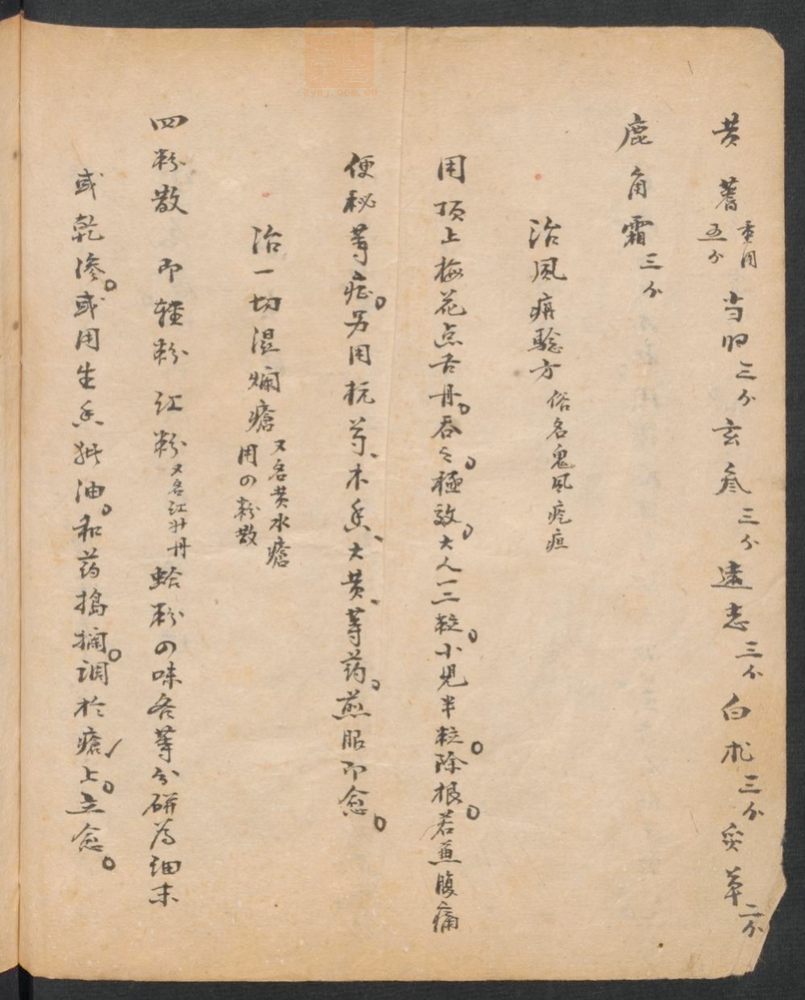 黄蓍重用五分 当归三分 玄参三分 远志三分 白朮三分 炙草二分
鹿角霜三分
治风痲验方 俗名鬼风疙疸
用顶上梅花点舌丹。吞之极效。大人一二粒。小兒半粒除根。若兼腹痛
便秘等症。另用枳芍、木香、大黄、等药。煎服即愈。
治一切湿烂疮 又名黄水疮 用四粉散
四粉散 即轻粉 红粉又名红升丹 蛤粉 四味各等分研为细末
或乾渗。或用生香油。和药捣烂。调於疮上。立愈。